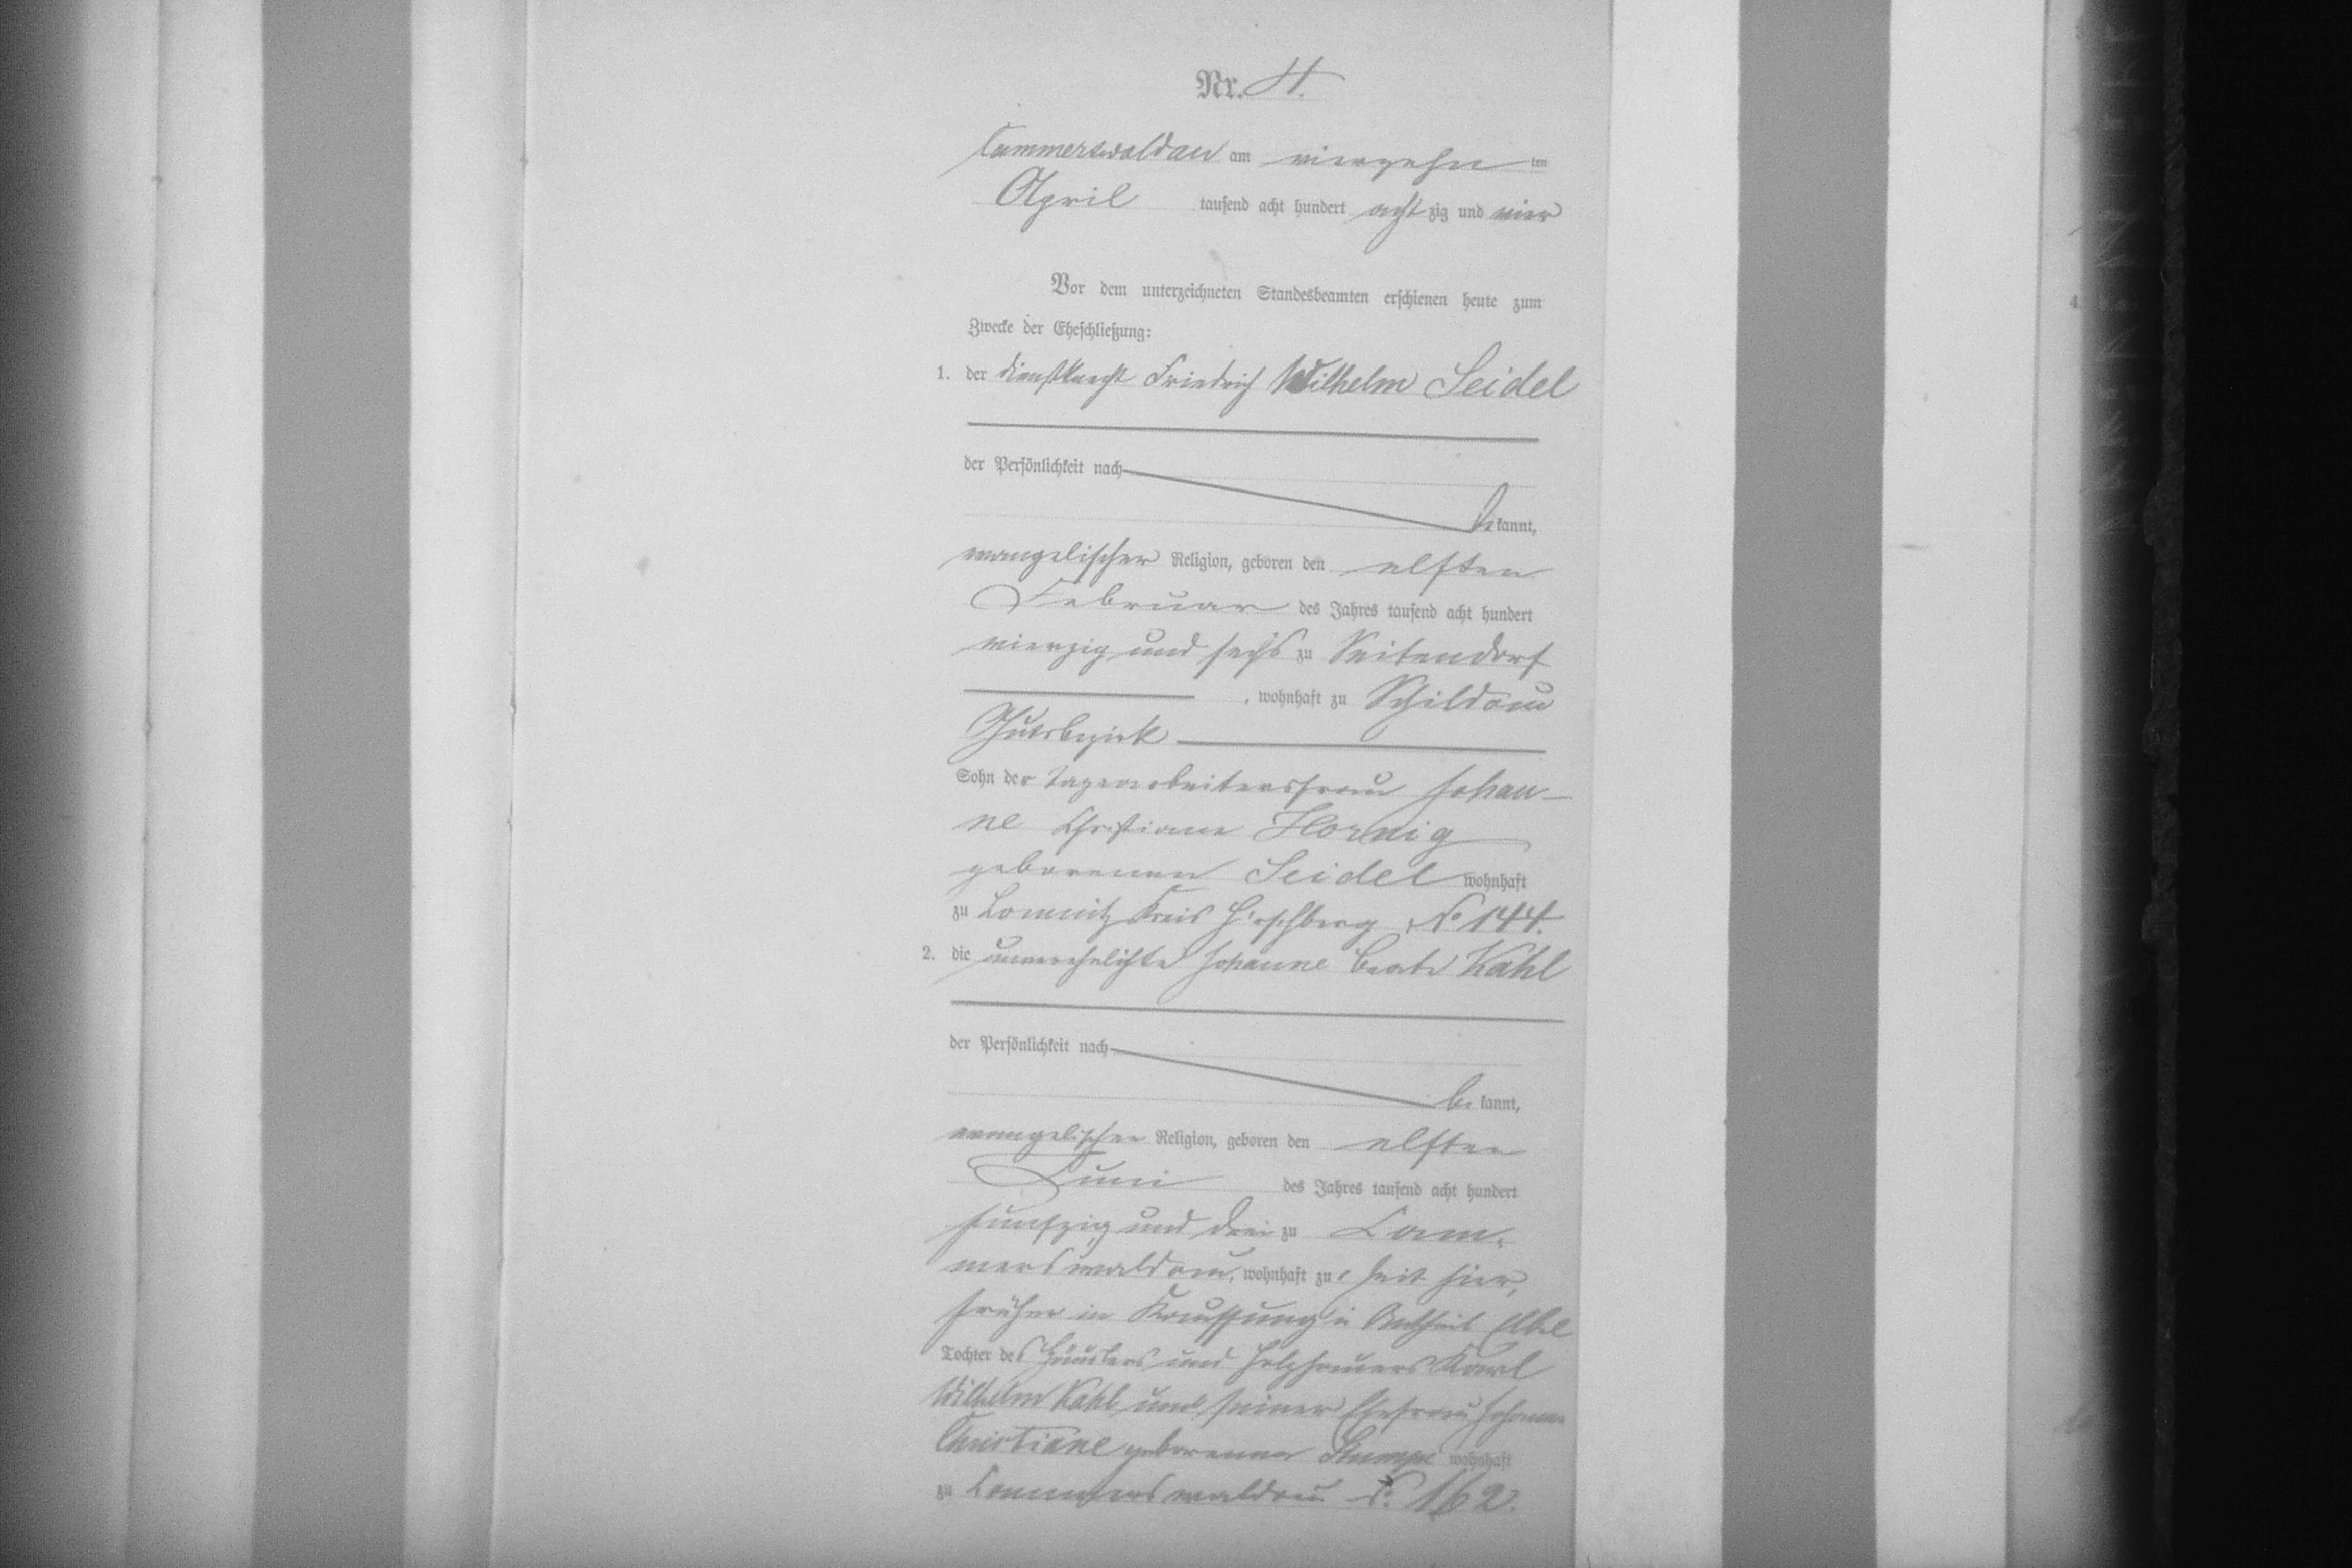 Nr. 4.
Cammerswaldau am vierzehn ten
April tausend acht hundert acht zig und vier
Vor dem unterzeichneten Standesbeamten erschienen heute zum
Zwecke der Eheschließung:
1. der Dienstknecht Friedrich Wilhelm Seidel
der Persönlichkeit nach
be kannt,
evangelischer Religion, geboren den elften
Februar des Jahres tausend acht hundert
vierzig und sechs zu Seitendorf
, wohnhaft zu Schildau
Gutsbezirk
Sohn der Tagearbeitersfrau Johan-
ne Christiane Hornig
geborenen Seidel wohnhaft
zu Lomnitz Kreis Hirschberg No 144.
2. die unverehelichte Johanne Beate Kahl
der Persönlichkeit nach
be kannt,
evangelischer Religion, geboren den elften
Juni des Jahres tausend acht hundert
fünfzig und drei zu Cam-
merswaldau, wohnhaft zu Zeit hier,
früher in Kauffung Antheil
Tochter des Häuslers und Holzhauers Karl
Wilhelm Kahl und seiner Ehefrau Johanne
Christiane geborener Stumpe wohnhaft
zu Cammerswaldau No 162.